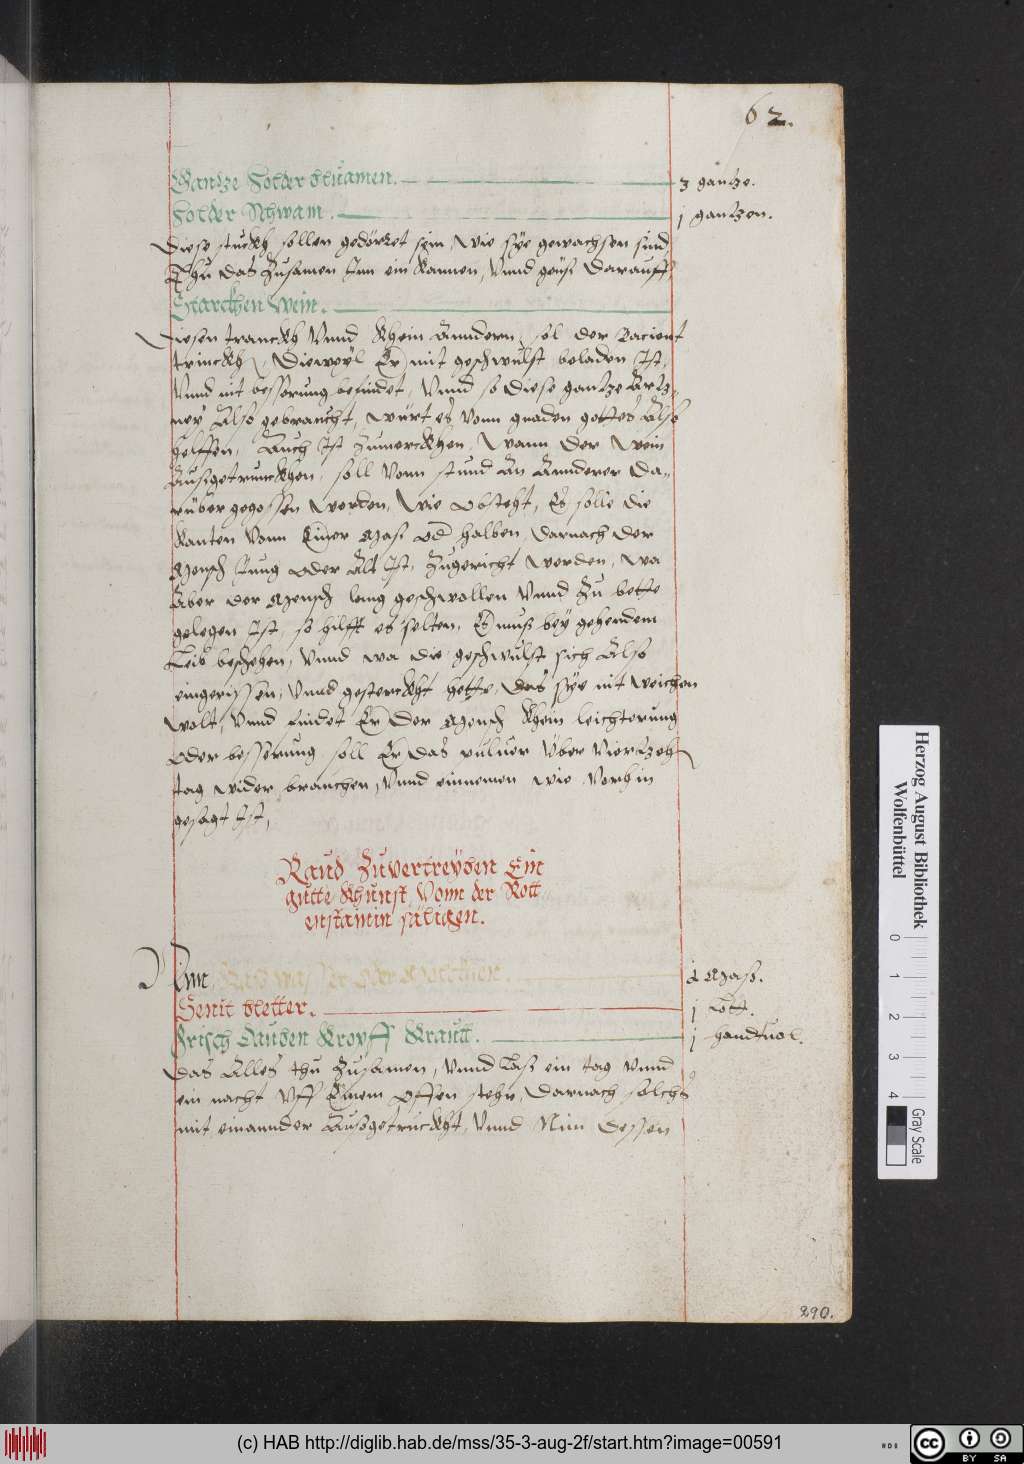 62.
Gantze Holder bluamen. 3 gantze.
Holder Schwam. j gantzen.
Diese stuckh sollen gedörret sein wie sÿe gewachsen sind,
Thu das Zusamen Inn ein Kannen, Vnnd geüß darauff,
Starckhen Wein.
Diesen tranckh Vnnd Khein Anndern, sol der Pacient
trinckh, Dieweÿl Er mit geschwulst beladen Ist,
Vnnd nit besserung befindet, Vnnd so diese gantze Artz,
neÿ Also gebraucht, würt es Vonn gnaden gottes Also
helffen, Auch Ist Zumerckhen, Wann der Wein
Außgetrunckhen, soll Vonn stund An Annderer da,,
rüber gegossen werden, Wie obsteht, Es solle die
Kanten Vonn Einer Maß od halben, darnach der
Mensch Jung oder Alt Ist, Zugericht werden, wa
Aber der Mensch lang geschwollen Vnnd Zu bette
gelegen Ist, so hilfft es selten, Es muß beÿ gehendem
Leib beschehen, Vnnd wa die geschwulst sich Also
eingerissen, Vnnd gesterckht hette, das sÿe nit weichen
wolt, Vnnd findet Er der Mensch Khein leichterung
oder besserung, soll Er das puluer Vber Viertzehn
tag wider brauchen, Vnnd einnemen wie Vorhin
gesagt Ist,
Raud Zuvertreÿben Ein
gutte Khunst Vonn der Rott,,
enstainin säligen.
Nim, wasser oder j Maß.
Senit bletter. j Lott.
Frisch Tauben Kropff Krautt. j handtuol.
das Alles thu Zusamen, Vnnd Laß ein tag Vnnd
ein nacht Vff Einem Offen stehn, darnach solchs
mit einannder Außgetruckht, Vnnd Nim dessen
290.
Herzog August Bibliothek
Wolfenbüttel
0 1 2 3 4
Gray Scale
(c) HAB http://diglib.hab.de/mss/35-3-aug-2f/start.htm?image=00591
cc BY SA